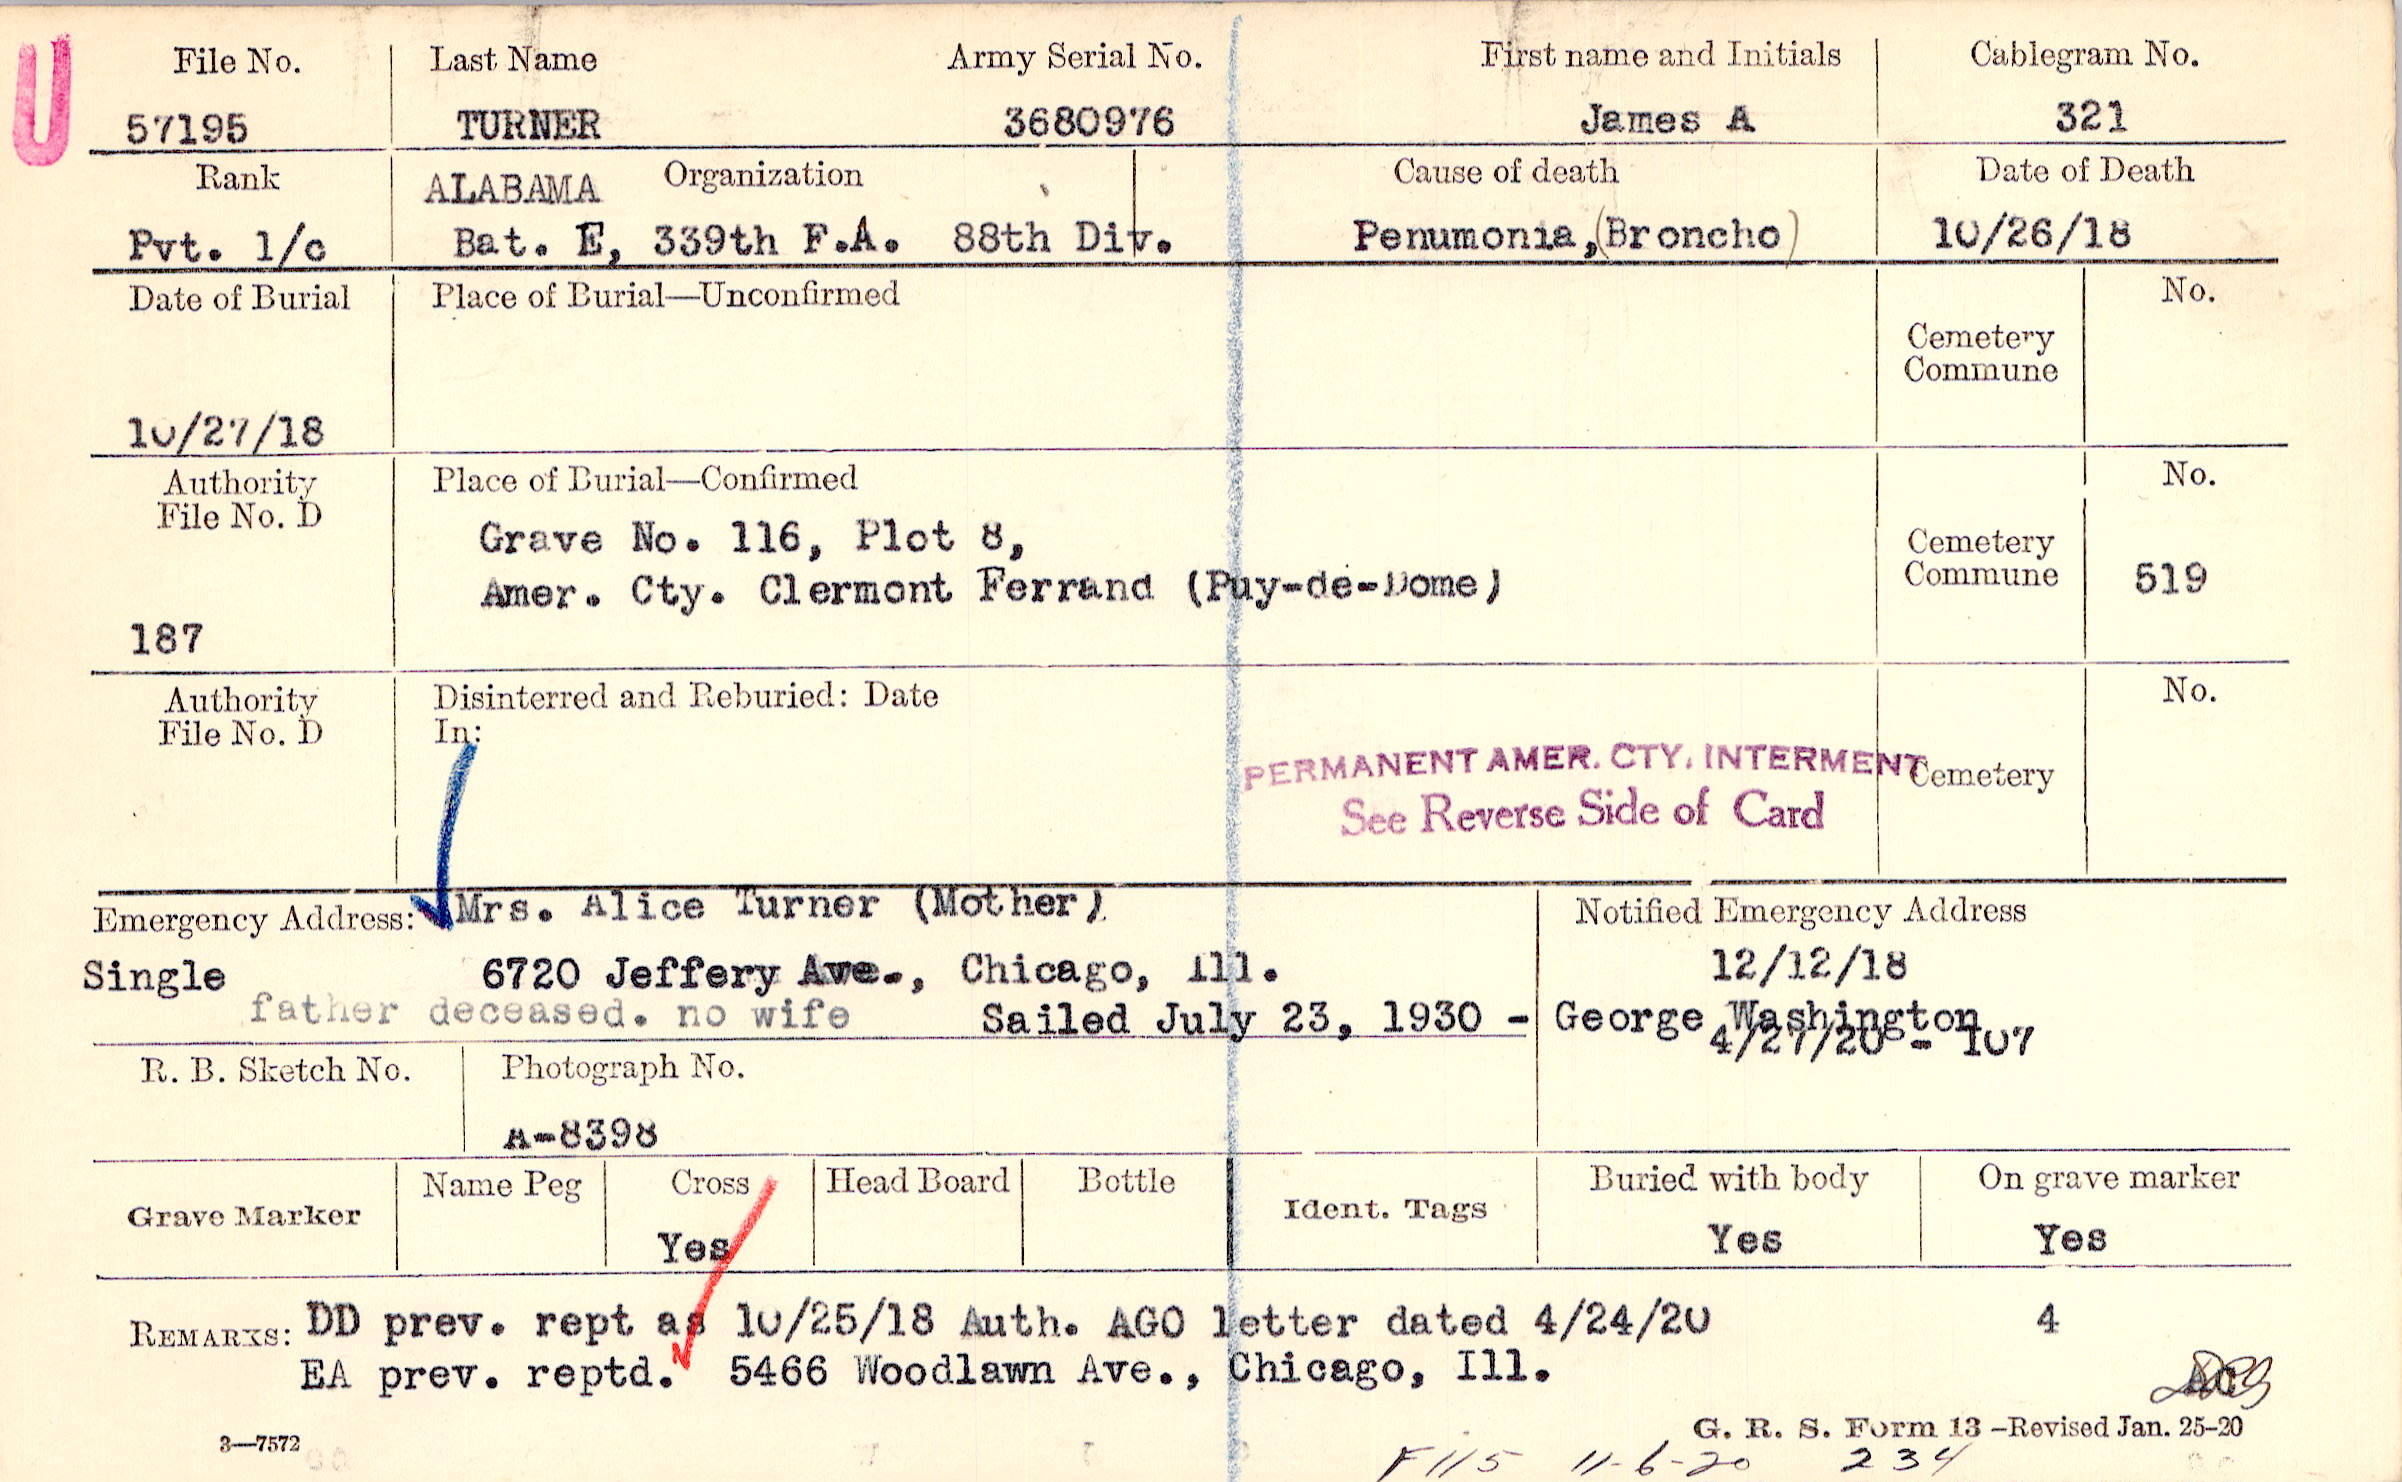 U
File No. Last Name Army Serial No. First name and Initials Cablegram No.
57195 TURNER 3680976 James A 321
Rank ALABAMA Organization Cause of death Date of Death
Pvt. 1/c Bat. E, 339th F.A. 88th Div. Penumonia,(Broncho) 10/26/18
Date of Burial Place of Burial—Unconfirmed No.
Cemetery
Commune
10/27/18
Authority Place of Burial—Confirmed No.
File No. D
Grave No. 116, Plot 8, Cemetery
Amer. Cty. Clermont Ferrand (Puy-de-Dome) Commune 519
187
Authority Disinterred and Reburied: Date No.
File No. D In:
PERMANENT AMER. CTY. INTERMENT Cemetery
See Reverse Side of Card
Emergency Address: Mrs. Alice Turner (Mother) Notified Emergency Address
Single 6720 Jeffery Ave., Chicago, Ill. 12/12/18
father deceased. no wife Sailed July 23, 1930 - George Washington
4/27/20 - 107
R. B. Sketch No. Photograph No.
A-8398
Grave Marker Name Peg Cross Head Board Bottle Ident. Tags Buried with body On grave marker
Yes Yes Yes
REMARKS: DD prev. rept as 10/25/18 Auth. AGO letter dated 4/24/20 4
EA prev. reptd. 5466 Woodlawn Ave., Chicago, Ill.
G. R. S. Form 13 -Revised Jan. 25-20
3—7572
F115 11-6-20 234